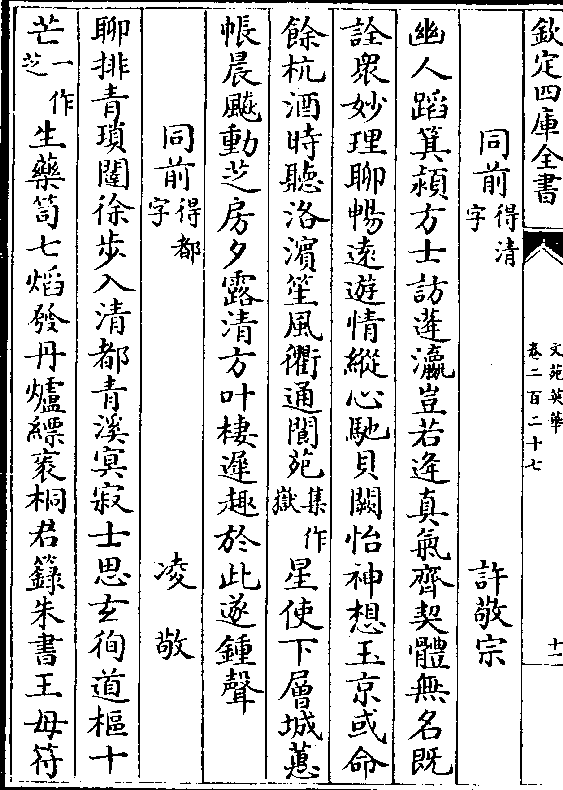 欽定四庫全書
文苑英華
卷二百二十七
十一
同前得清字
許敬宗
幽人蹈箕潁方士訪蓬瀛豈若逢真氣齊契體無名既
詮衆妙理聊暢遠遊情縱心馳貝闕怡神想玉京或命
餘杭酒時聽洛濱笙風衢通閬苑集作嶽星使下層城蕙
帳晨飈動芝房夕露清方叶棲遲趣於此遂鍾聲
同前得都字
凌敬
聊排青瑣闥徐步入清都青溪冥寂士思玄徇道樞十
芒一作芝生藥笥七熖發丹爐縹袠桐君籙朱書王母符